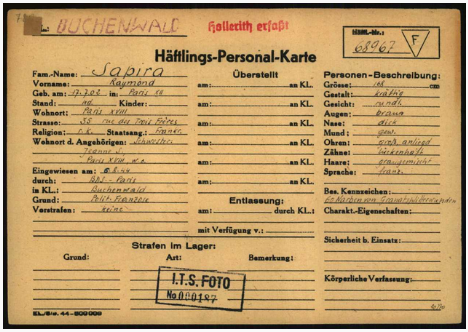 BUCHENWALD
Hollerith erfaßt
Häftl.-Nr.:
68967
F
Häftlings-Personal-Karte
Fam.-Name: Sapira
Vorname: Raymond
Geb. am: 17.7.02 in: Paris
Stand: Kinder:
Wohnort: Paris XVIII
Strasse: 35 rue des Trois Frères
Religion: r.k. Staatsang.: Frankr.
Wohnort d. Angehörigen: Schwester
Paris XVIII
Eingewiesen am: 8.44
durch: Paris
in KL.: Buchenwald
Grund: Polit. Franzose
Vorstrafen: keine
Überstellt
am: an KL.
am: an KL.
am: an KL.
am: an KL.
am: an KL.
am: an KL.
Entlassung:
am: durch KL.:
mit Verfügung v.:
Personen-Beschreibung:
Grösse: 168 cm
Gestalt: kräftig
Gesicht: rund
Augen: braun
Nase: dick
Mund: gew.
Ohren: groß anliegd
Zähne: lückenhaft
Haare: graumeliert
Sprache: franz.
Bes. Kennzeichen:
Charakt.-Eigenschaften:
Sicherheit b. Einsatz:
Körperliche Verfassung:
Strafen im Lager:
Grund: Art: Bemerkung:
I.T.S. FOTO
No 000187